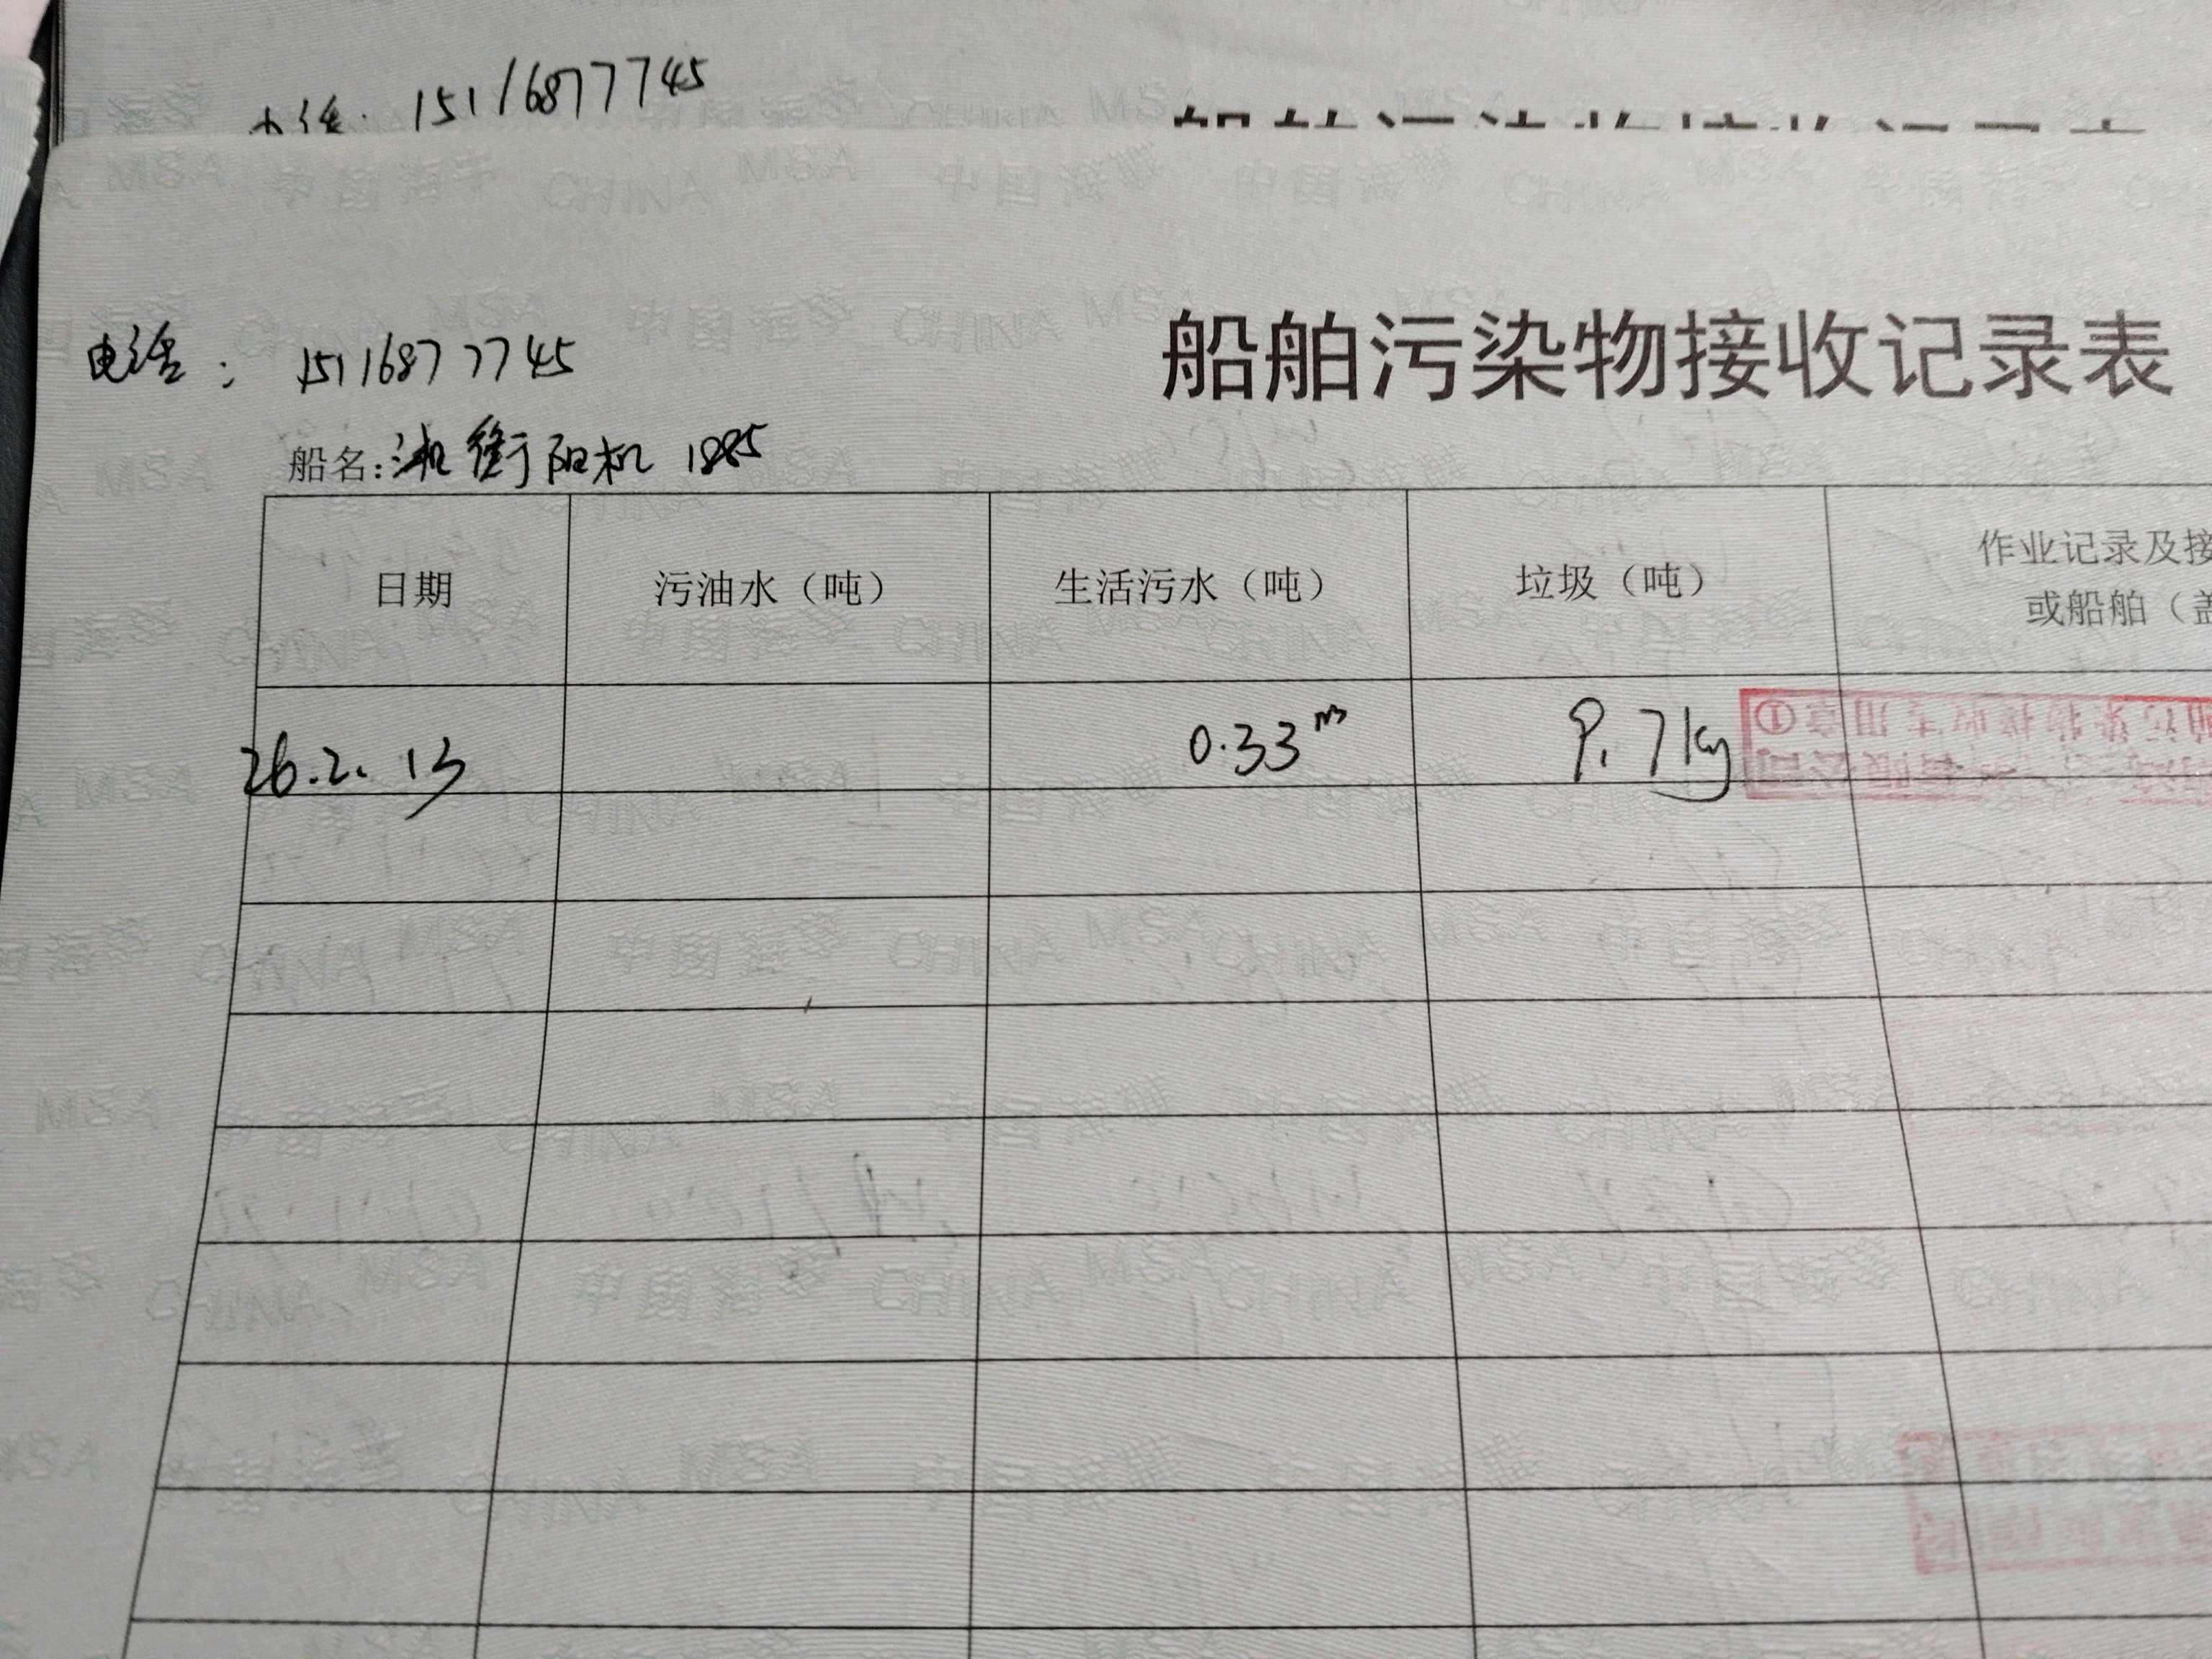 15116877745
船舶污染物接收记录表
电话: 15116877745
船名:湘衡阳机 1885
日期 污油水（吨） 生活污水（吨） 垃圾（吨） 作业记录及接
或船舶（盖
26.2.13 0.33m³ 9.7kg